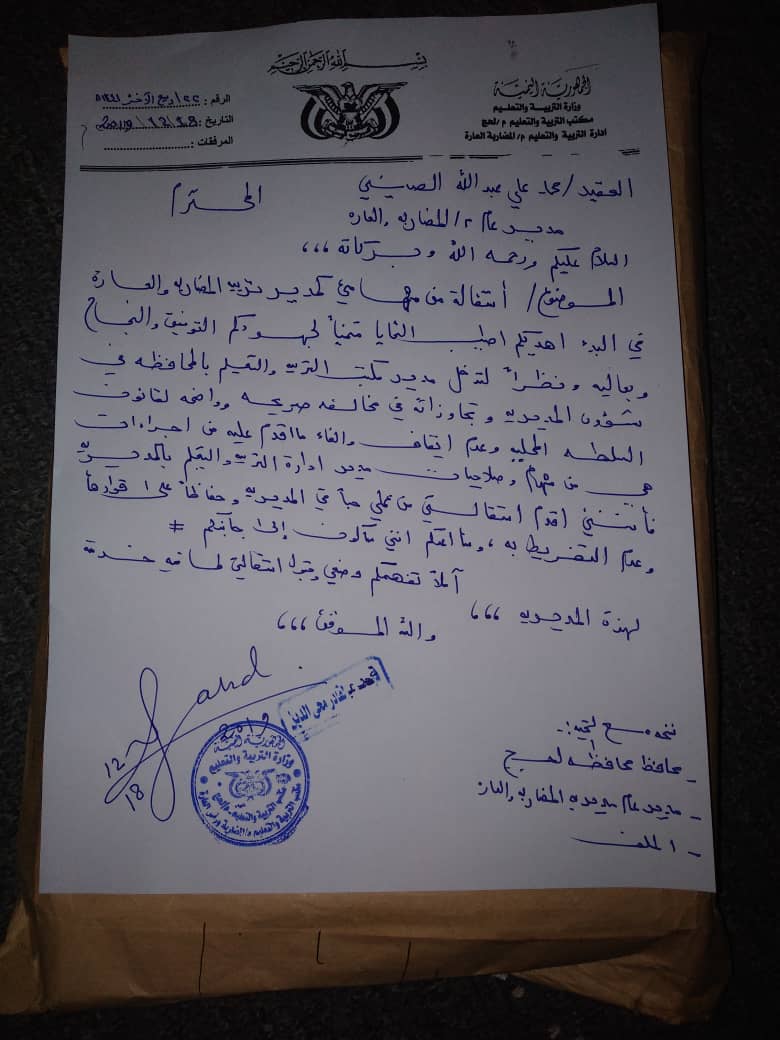 بسم الله الرحمن الرحيم
الجمهورية اليمنية
وزارة التربية والتعليم
مكتب التربية والتعليم م/لحج
ادارة التربية والتعليم م/ المضاربة العارة
الرقم : ٢٢/ربيع الآخر/١٤٤١ه
التاريخ : 2019/12/18
المرفقات :
العقيد / علي عبدالله الصبيحي المحترم
مدير عام م/ المضاربه والعاره
السلام عليكم ورحمه الله وبركاتة ،،،
الموضوع/ أستقالة من مهامي كمدير تربيه المضاربه والعارة
في البدء اهديكم اطيب التحايا متمنياً لجهودكم التوفيق والنجاح
وبعاليه ونظراً لتدخل مدير مكتب التربيه والتعليم بالمحافظه في
شؤون المديريه وتجاوزاته في مخالفه صريحه وواضحه لقانون
السلطه المحليه وعدم ايقاف والغاء مااقدم عليه من اجراءات
هي من مهام وصلاحيات مدير ادارة التربيه والتعليم بالمديريه
فأنني اقدم استقالتي من عملي حباً في المديريه وحفاظاً على
وعدم التفريط به ، انني سأكون إلى جانبكم #
آملاً تفهمكم وضعي وقبول استقالتي لما فيه خدمة
لهذة المديريه ،،،
والله الموفق ،،،
2019
12
18
الجمهورية اليمنية
وزارة التربية والتعليم
نسخه مع التحيه :-
- محافظ محافظه لحج
- مدير عام مديريه المضاربه والعاره
- الملف